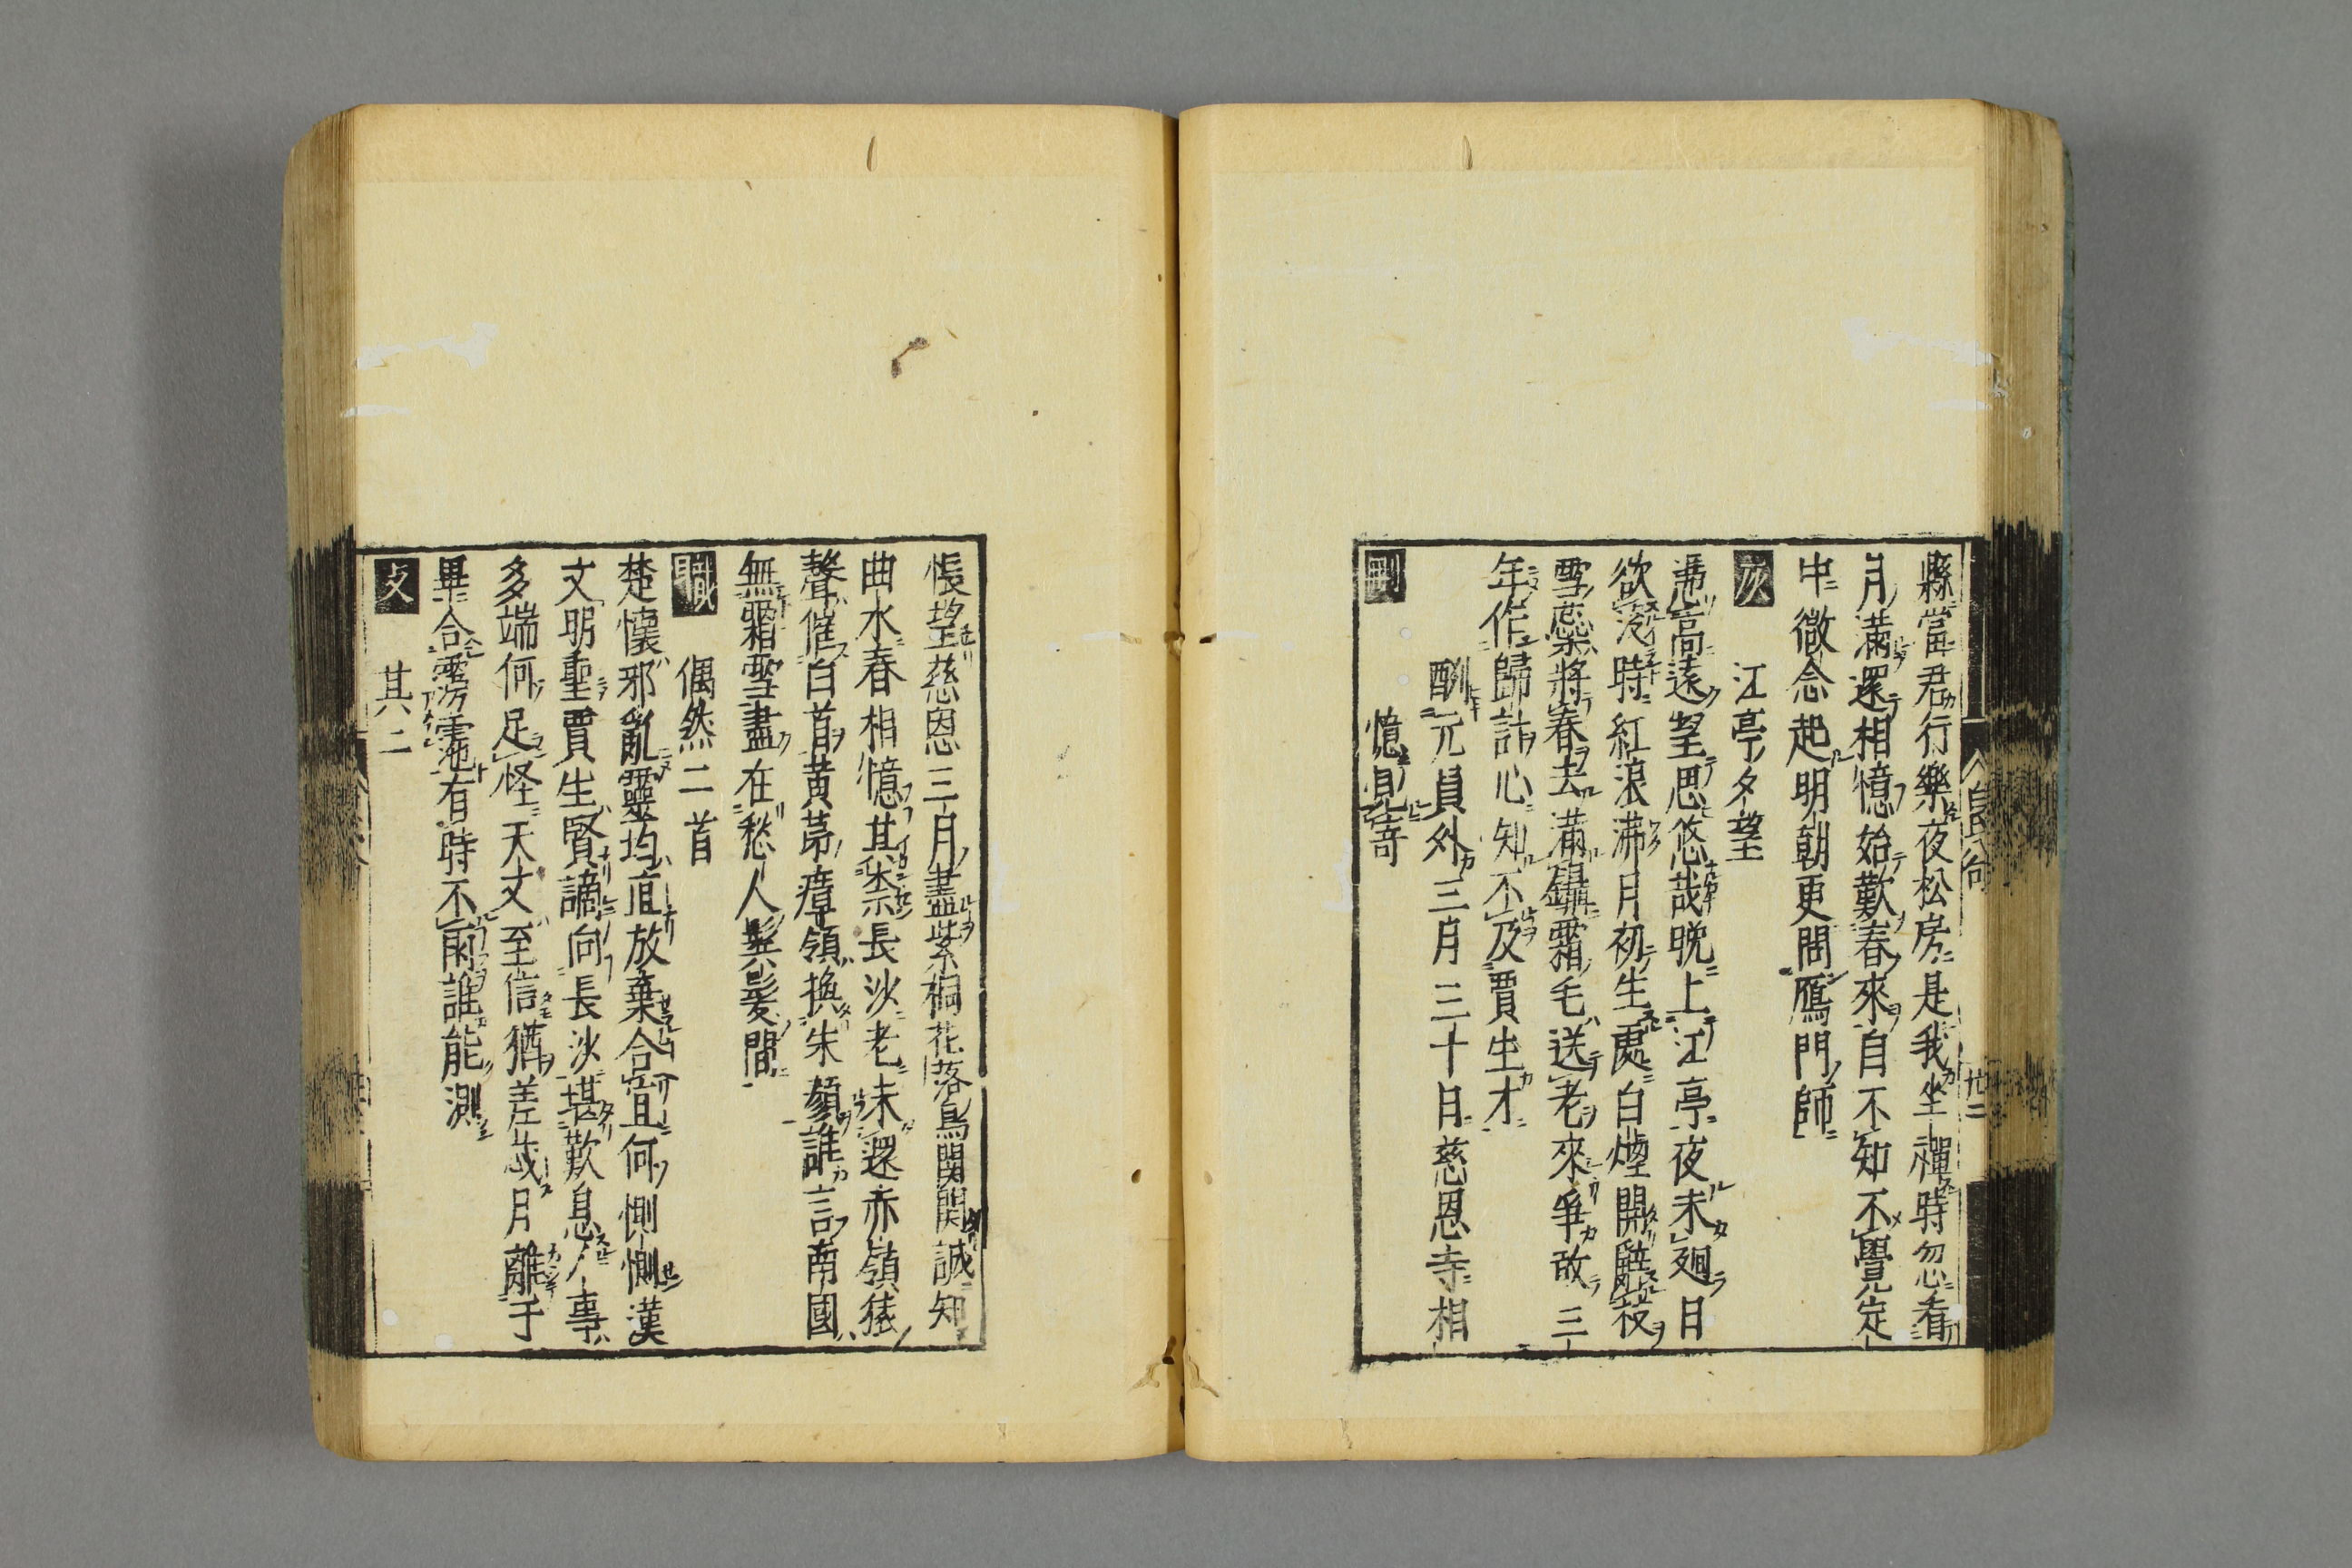 縣當君行樂夜松房是我坐禪時忽看
月滿還相憶始歎春來自不知不覺定
中微念起明朝更問鴈門師
江亭夕望
憑高遠望思悠哉晚上江亭夜未廻日
欲沒時紅浪沸月初生處白煙開辭枝
雪蘂將春去滿鑷霜毛送老來爭敢三
年作歸計心知不及賈生才
酬元員外三月三十日慈恩寺相
憶見寄
悵望慈恩三月盡紫桐花落鳥関関誠知
曲水春相憶其柰長沙老未還赤嶺猿
聲催白首黃茅瘴領換朱顏誰言南國
無霜雪盡在愁人鬂髮間
偶然二首
楚懷邪亂靈均直放棄合宜何惻惻漢
文明聖賈生賢謫向長沙堪歎息人事
多端何足怪天文至信猶差忒月離于
畢合霶霑有時不雨誰能測
其二